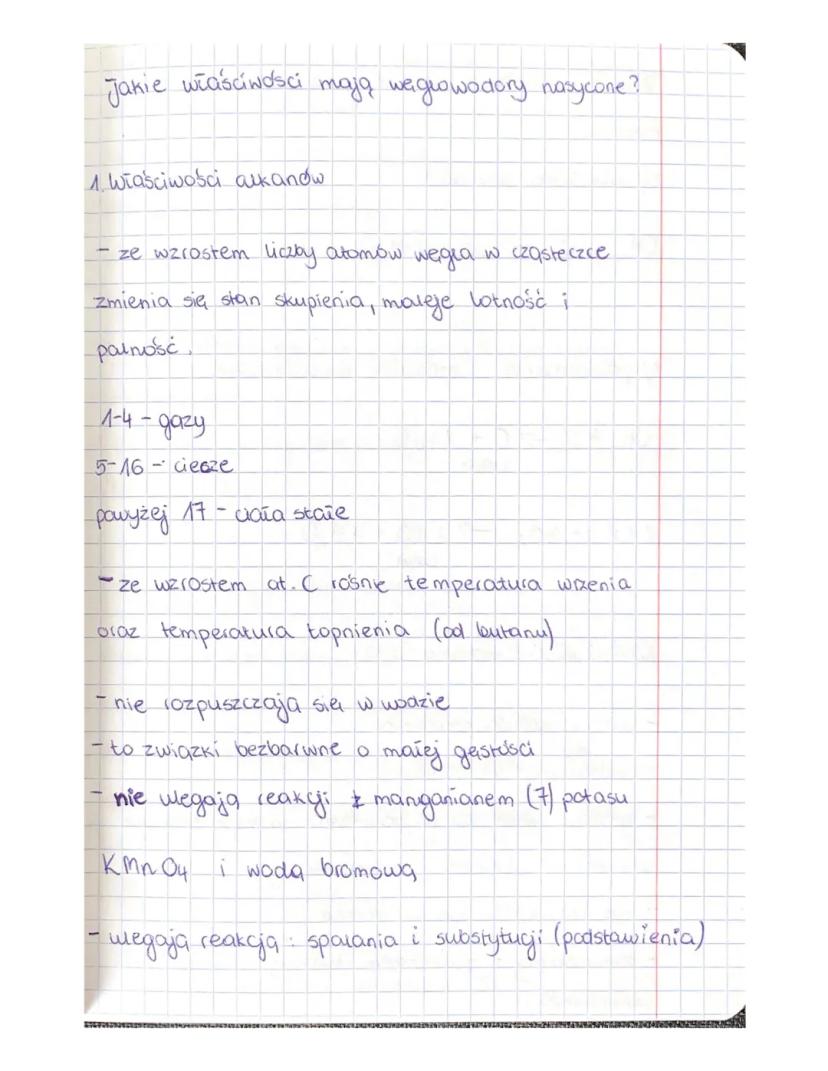 Jakie właściwości mają węglowodory nasycone?
1. Właściwości alkanów
- ze wzrostem liczby atomów węgla w cząsteczce
zmienia się stan skupienia, maleje lotność i
palność.
1-4 - gazy
5-16 - ciecze
powyżej 17 - ciała stałe
- ze wzrostem at. C rośnie temperatura wrzenia
oraz temperatura topnienia (od butanu)
- nie rozpuszczają się w wodzie
- to związki bezbarwne o małej gęstości
- nie ulegają reakcji z manganianem (7) potasu
KMnO4 i wodą bromową
- ulegają reakcją: spalania i substytucji (podstawienia)